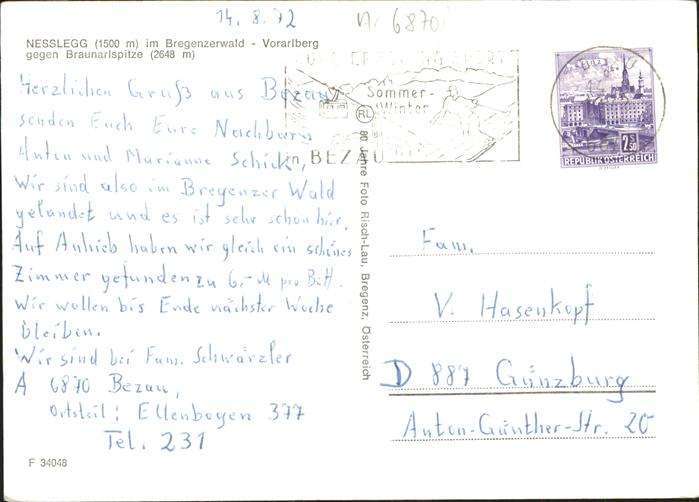 14. 8. 72
n. 6870
NESSLEGG (1500 m) im Bregenzerwald - Vorarlberg
gegen Braunarlspitze (2648 m)
Herzlichen Gruß aus Bezau
senden Euch Eure Nachbarn
Anton und Marianne Schick,
Wir sind also im Bregenzer Wald
gelandet und es ist sehr schön hir,
Auf Anhieb haben wir gleich ein schönes
Zimmer gefunden zu 6.- M pro Bett.
Wir wollen bis Ende nächster Woche
bleiben.
Wir sind bei Fam. Schwärzler
A 6870 Bezau,
Ortsteil: Ellenbogen 377
Tel. 231
F 34048
80 Jahre Foto Risch-Lau, Bregenz, Österreich
Sommer-
Winter
RL
in BEZAU
2 S 50
REPUBLIK ÖSTERREICH
Fam.
V. Hasenkopf
D 887 Günzburg
Anton-Günther-Str. 20